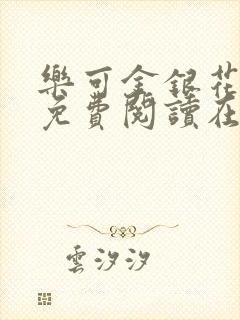 樂可金銀花
免費閱讀在
雲汐汐